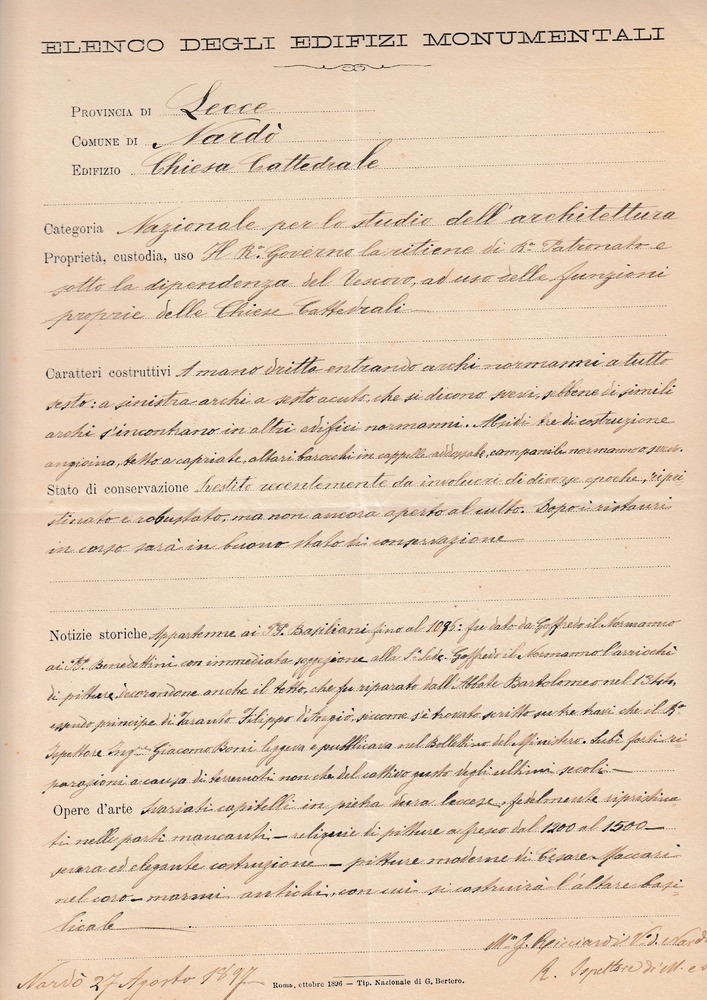 ELENCO DEGLI EDIFIZI MONUMENTALI
PROVINCIA DI Lecce
COMUNE DI Nardò
EDIFIZIO Chiesa Cattedrale
Categoria Nazionale per lo studio dell'architettura
Proprietà, custodia, uso Il R.º Governo la ritiene di R.º Patronato e
sotto la dipendenza del Vescovo, ad uso delle funzioni
proprie delle Chiese Cattedrali
Caratteri costruttivi A mano dritta entrando archi normanni a tutto
sesto: a sinistra archi a sesto acuto, che si dicono svevi, sebbene di simili
archi s'incontrano in altri edifici normanni. Absidi tre di costruzione
angioina, tetto a capriate, altari barocchi in cappelle addossate, campanile normanno o svevo.
Stato di conservazione Svestito recentemente da involucri di diverse epoche, ripri
stinato e robustato, ma non ancora aperto al culto. Dopo i ristauri
in corso sarà in buono stato di conservazione
Notizie storiche Appartenne ai PP. Basiliani fino al : fu dato da Goffredo il Normanno
ai PP. Benedettini con immediata soggezione alla S. Sede. Goffredo il Normanno l'arricchì
di pitture, decorandone anche il tetto, che fu riparato dall'Abbate Bartolomeo nel
essendo principe di Taranto Filippo d'Angiò, siccome s'è trovato scritto su tre travi che il R.º
Ispettore Ing. Giacomo Boni leggeva e pubblicava nel Bollettino del Ministero. Subì forti ri
parazioni a causa di terremoti non che del cattivo gusto degli ultimi secoli
Opere d'arte Svariati capitelli in pietra dura leccese, fedelmente ripristina
ti nelle parti mancanti — reliquie di pitture a fresco dal 1200 al 1500 —
severa ed elegante costruzione — pitture moderne di Cesare Maccari
nel coro — marmi antichi, con cui si costruirà l'altare basi
licale
G. Ricciardi V. d. Nardò
R. Ispettore di M. e
Nardò 27 Agosto 1897
Roma, ottobre 1896 — Tip. Nazionale di G. Bertero.